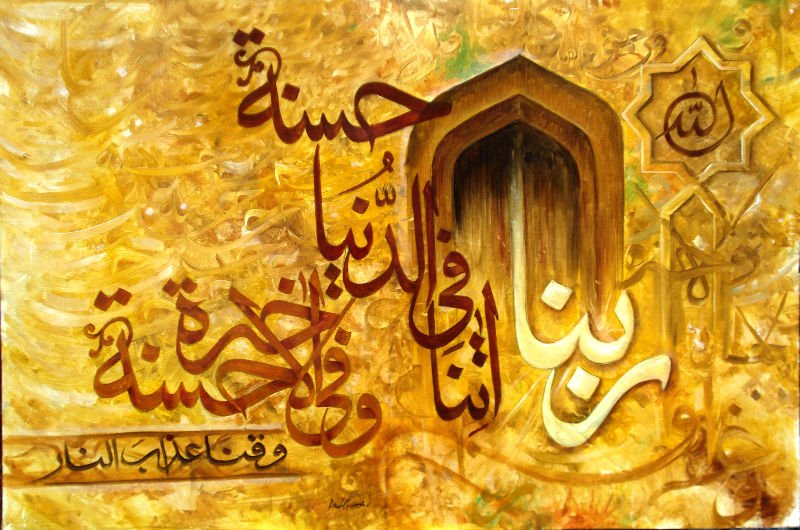 الله
ربنا
اتنا فی الدنیا
حسنة
وفی الاخرة
حسنة
وقنا عذاب النار